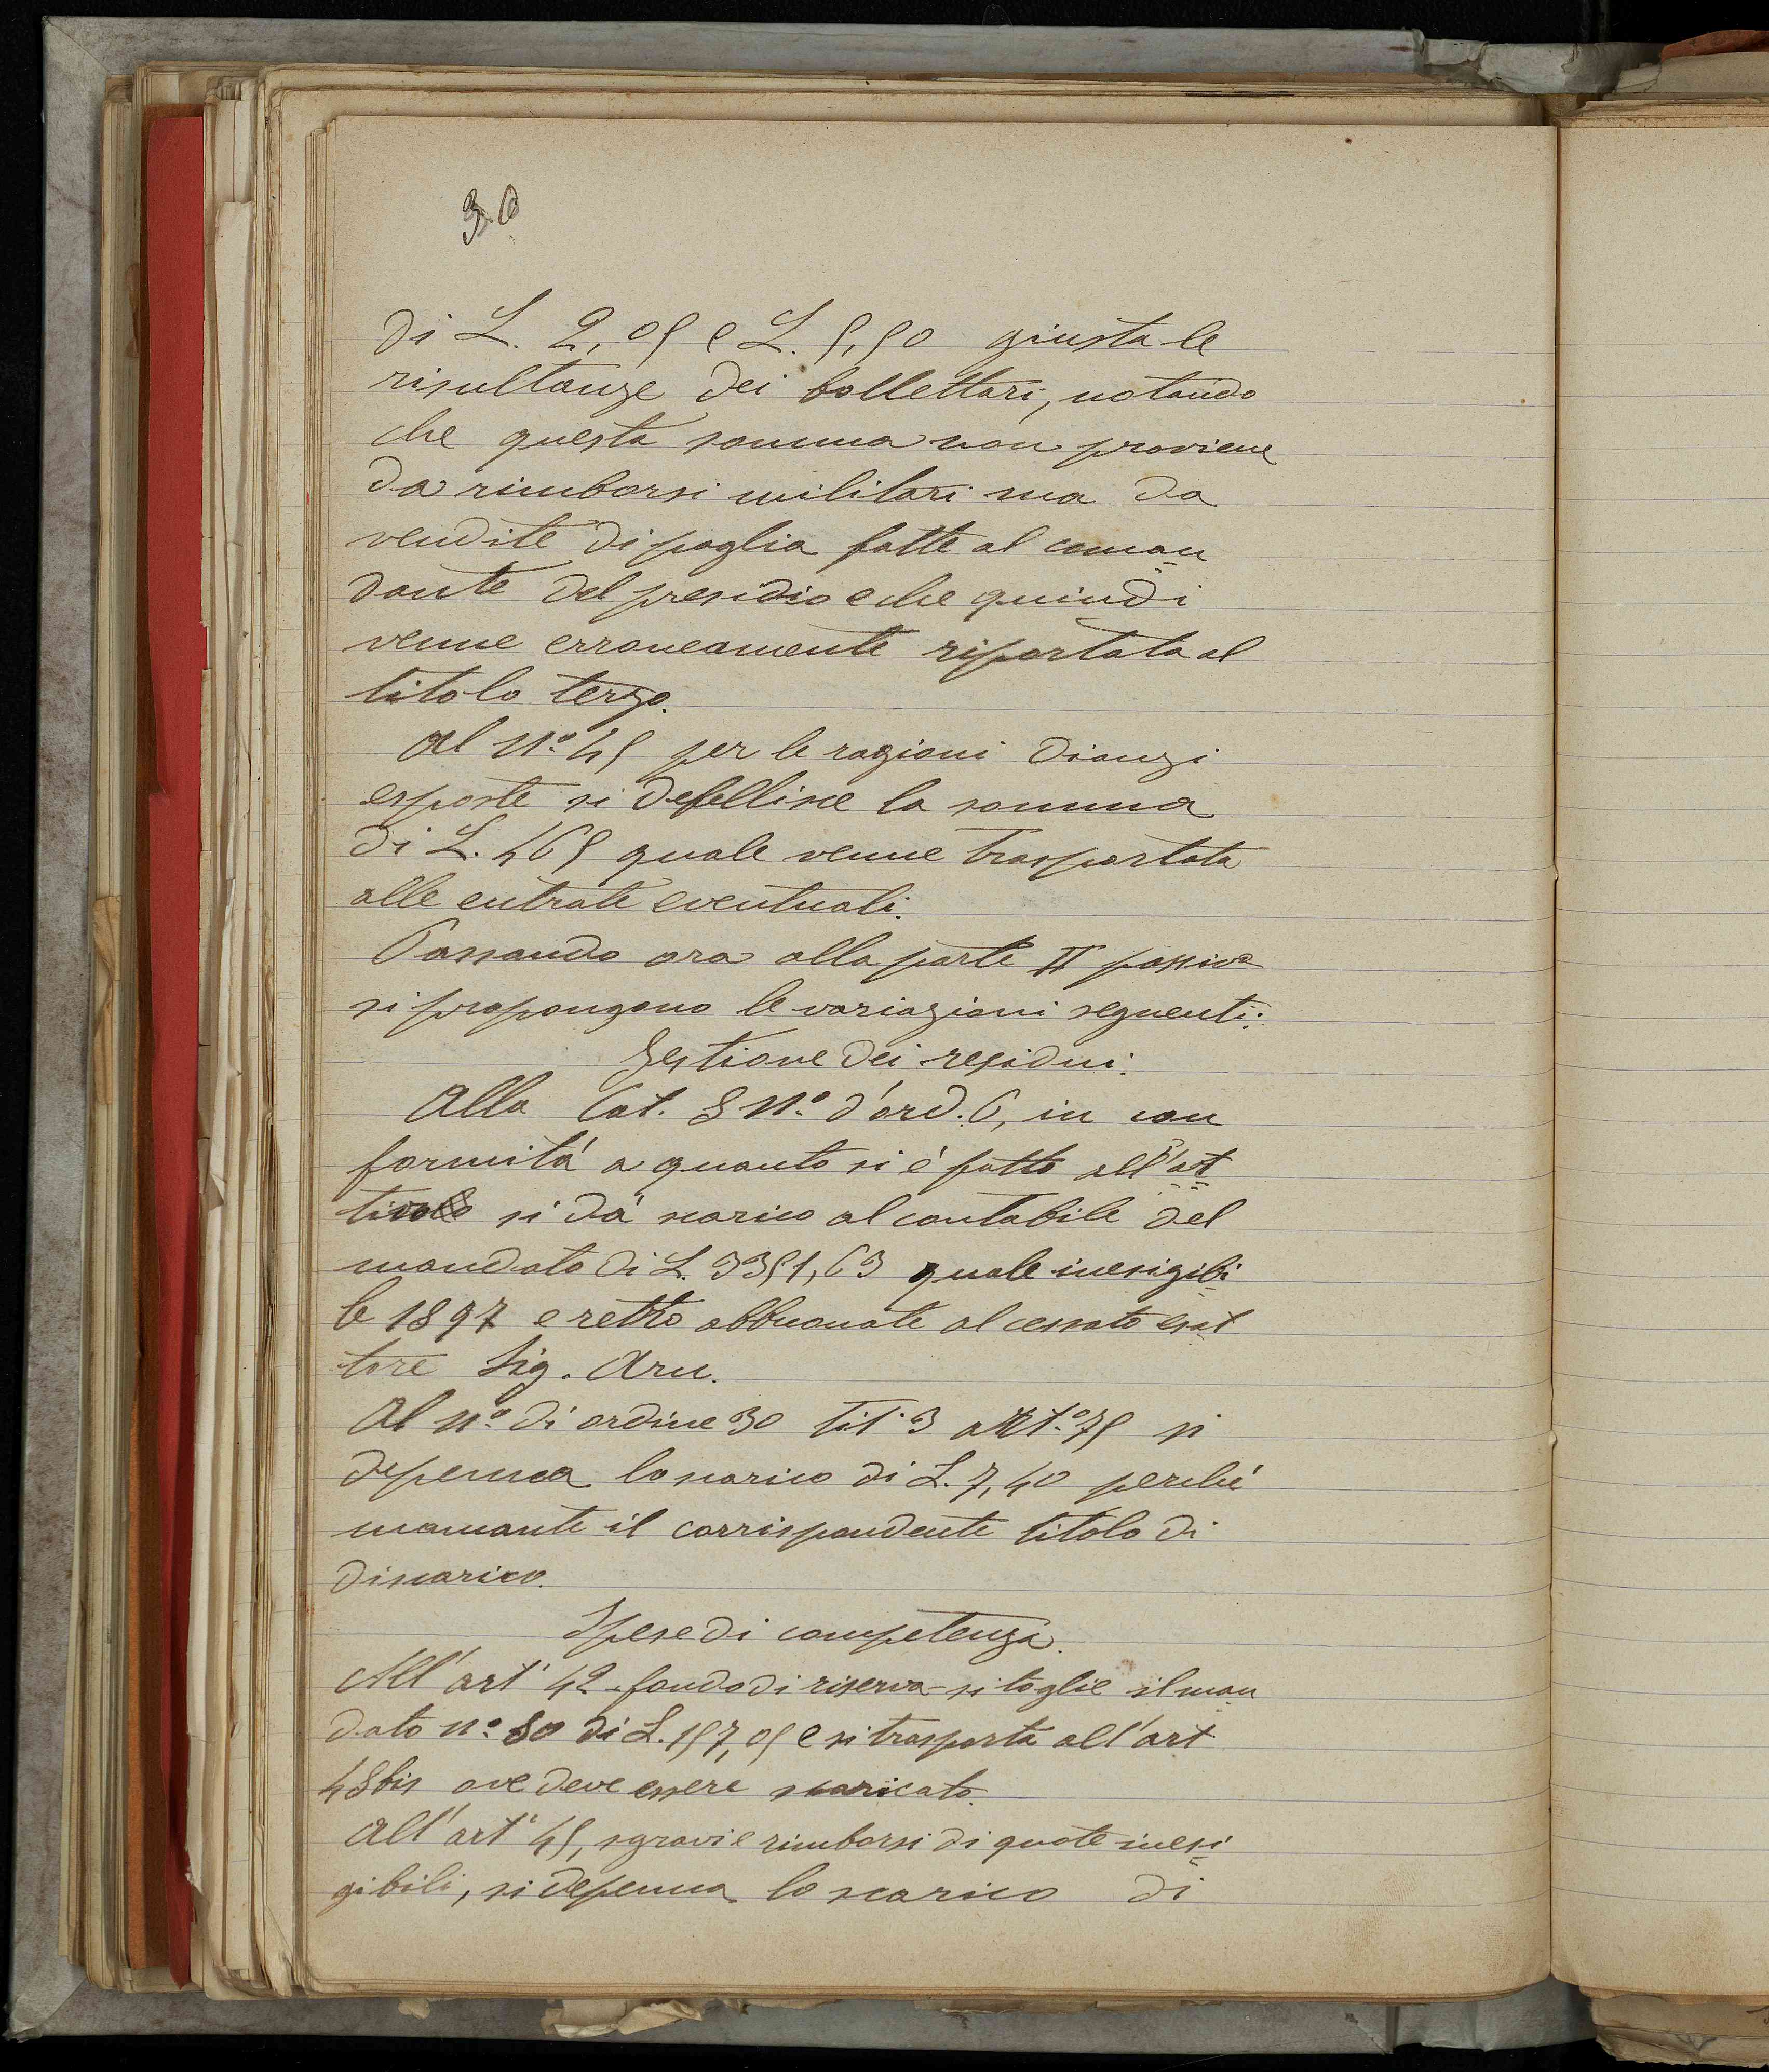 30
di L. 2,05 e L. 5,50 giusta le
risultanze dei bollettari, notando
che questa somma non proviene
da rimborsi militari ma da
vendite di paglia fatte al coman
dante del presidio e che quindi
venne erroneamente riportata al
titolo terzo.
Al N.º 45 per le ragioni dianzi
esposte si defellisce la somma
di L. 465 quale venne trasportata
alle entrate eventuali.
Passando ora alla parte II passiva
si propongono le variazioni seguenti:
Gestione dei residui.
Alla Cat. 8 N.º d'ord. 6, in con
formitá a quanto si é fatto all'at
tivo si dá scarico al contabile del
mandato di L. 3351,63 quale inesigibi
le 1897 e retro abbuonate al cessato esat
tore Sig. Aru.
Al N.º di ordine 30 tit. 3 art.º 75 si
depenna lo scarico di L. 7,40 perché
mamante il corrispondente titolo di
discarico.
Spese di competenza.
All'art. 42 - fondo di riserva - si toglie il man
dato n.º 80 di L. 157,05 e si trasporta all'art
48 bis ove deve essere scaricato.
All'art. 45, sgravi e rimborsi di quote inesi
gibili, si depenna lo scarico di